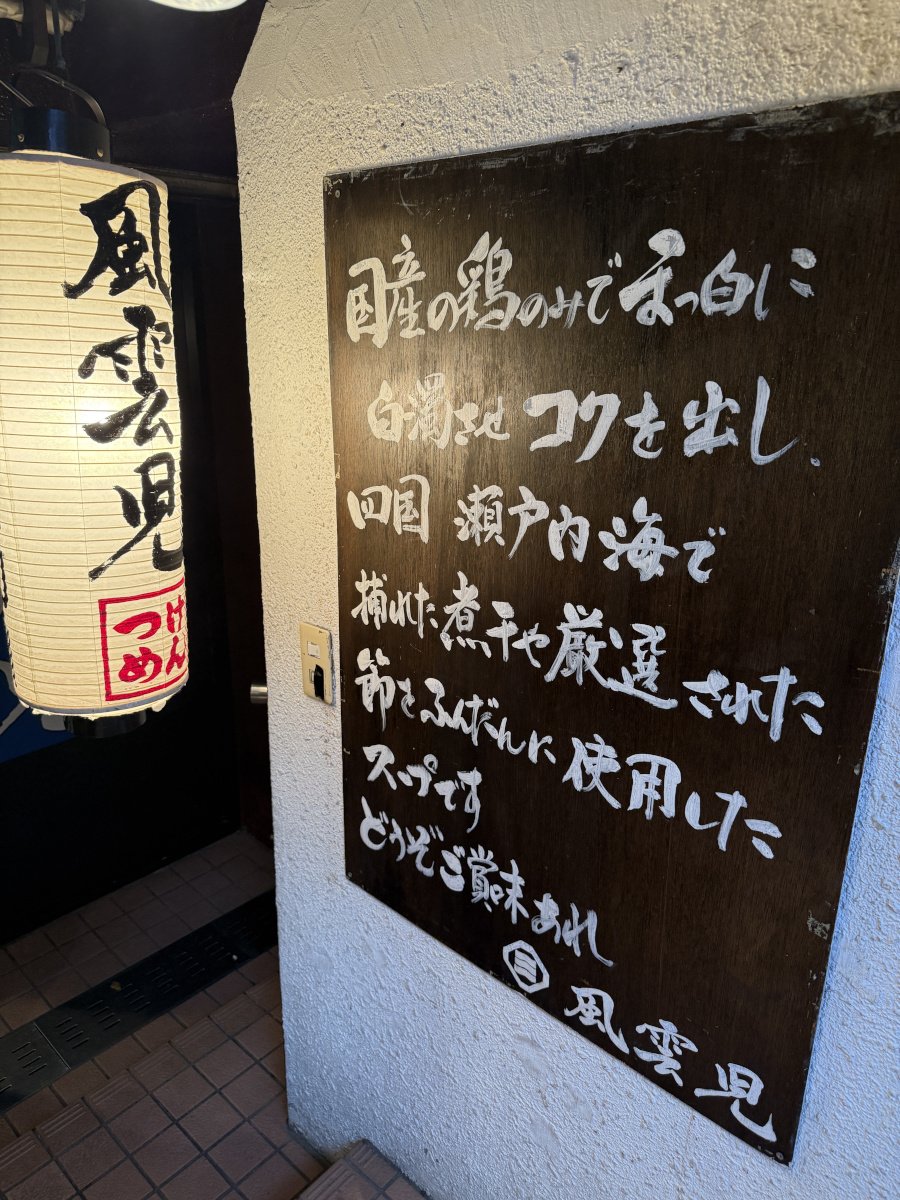 風雲児
つけ
めん
国産の鶏のみでまっ白に
白濁させコクを出し、
四国 瀬戸内海で
捕れた煮干や厳選された
節をふんだんに使用した
スープです
どうぞご賞味あれ
風雲児